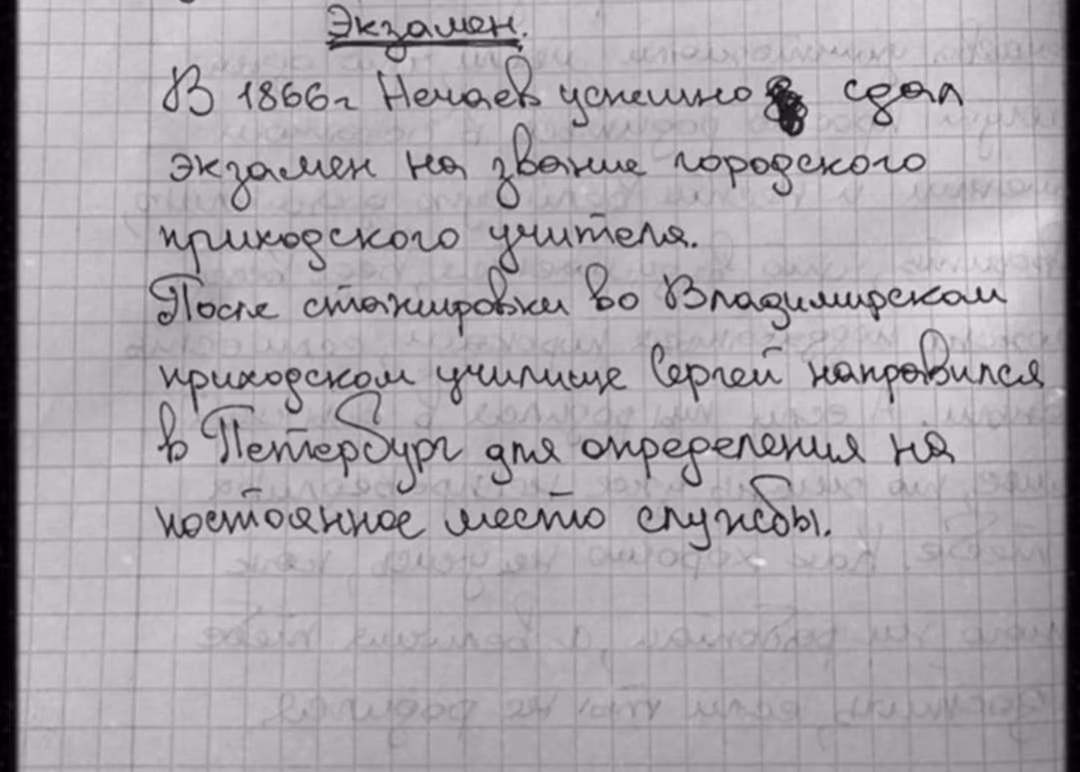 Экзамен.
В 1866г Нечаев успешно сдал
экзамен на звание городского
приходского учителя.
После стажировки во Владимирском
приходском училище Сергей направился
в Петербург для определения на
постоянное место службы.